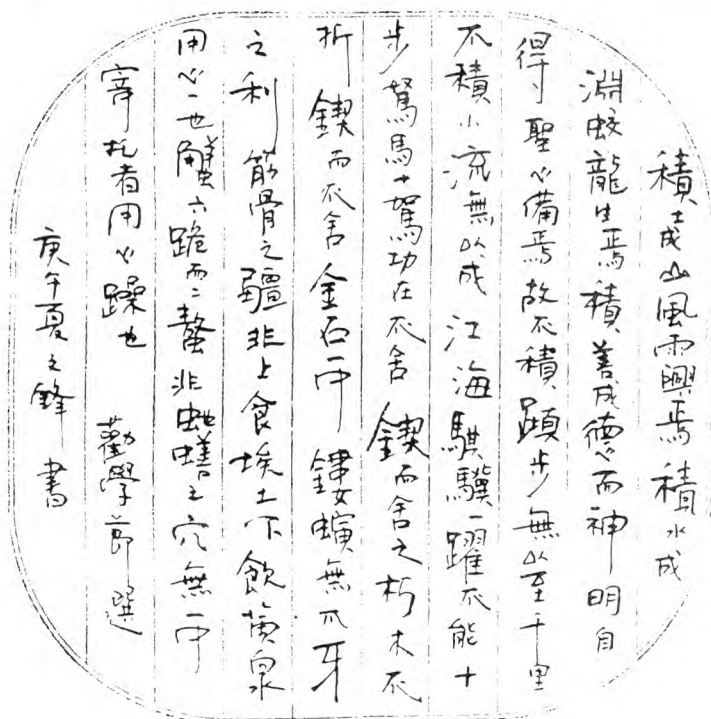 積土成山風雨興焉積水成
淵蛟龍生焉積善成德而神明自
得聖心備焉故不積蹞步無以至千里
不積小流無以成江海騏驥一躍不能十
步駑馬十駕功在不舍鍥而舍之朽木不
折鍥而不舍金石可鏤螾無爪牙
之利筋骨之疆非上食埃土下飲黄泉
用心一也蟹六跪而二螯非虵蟺之穴無可
寄托者用心躁也 勸學節選
庚午夏之鋒書